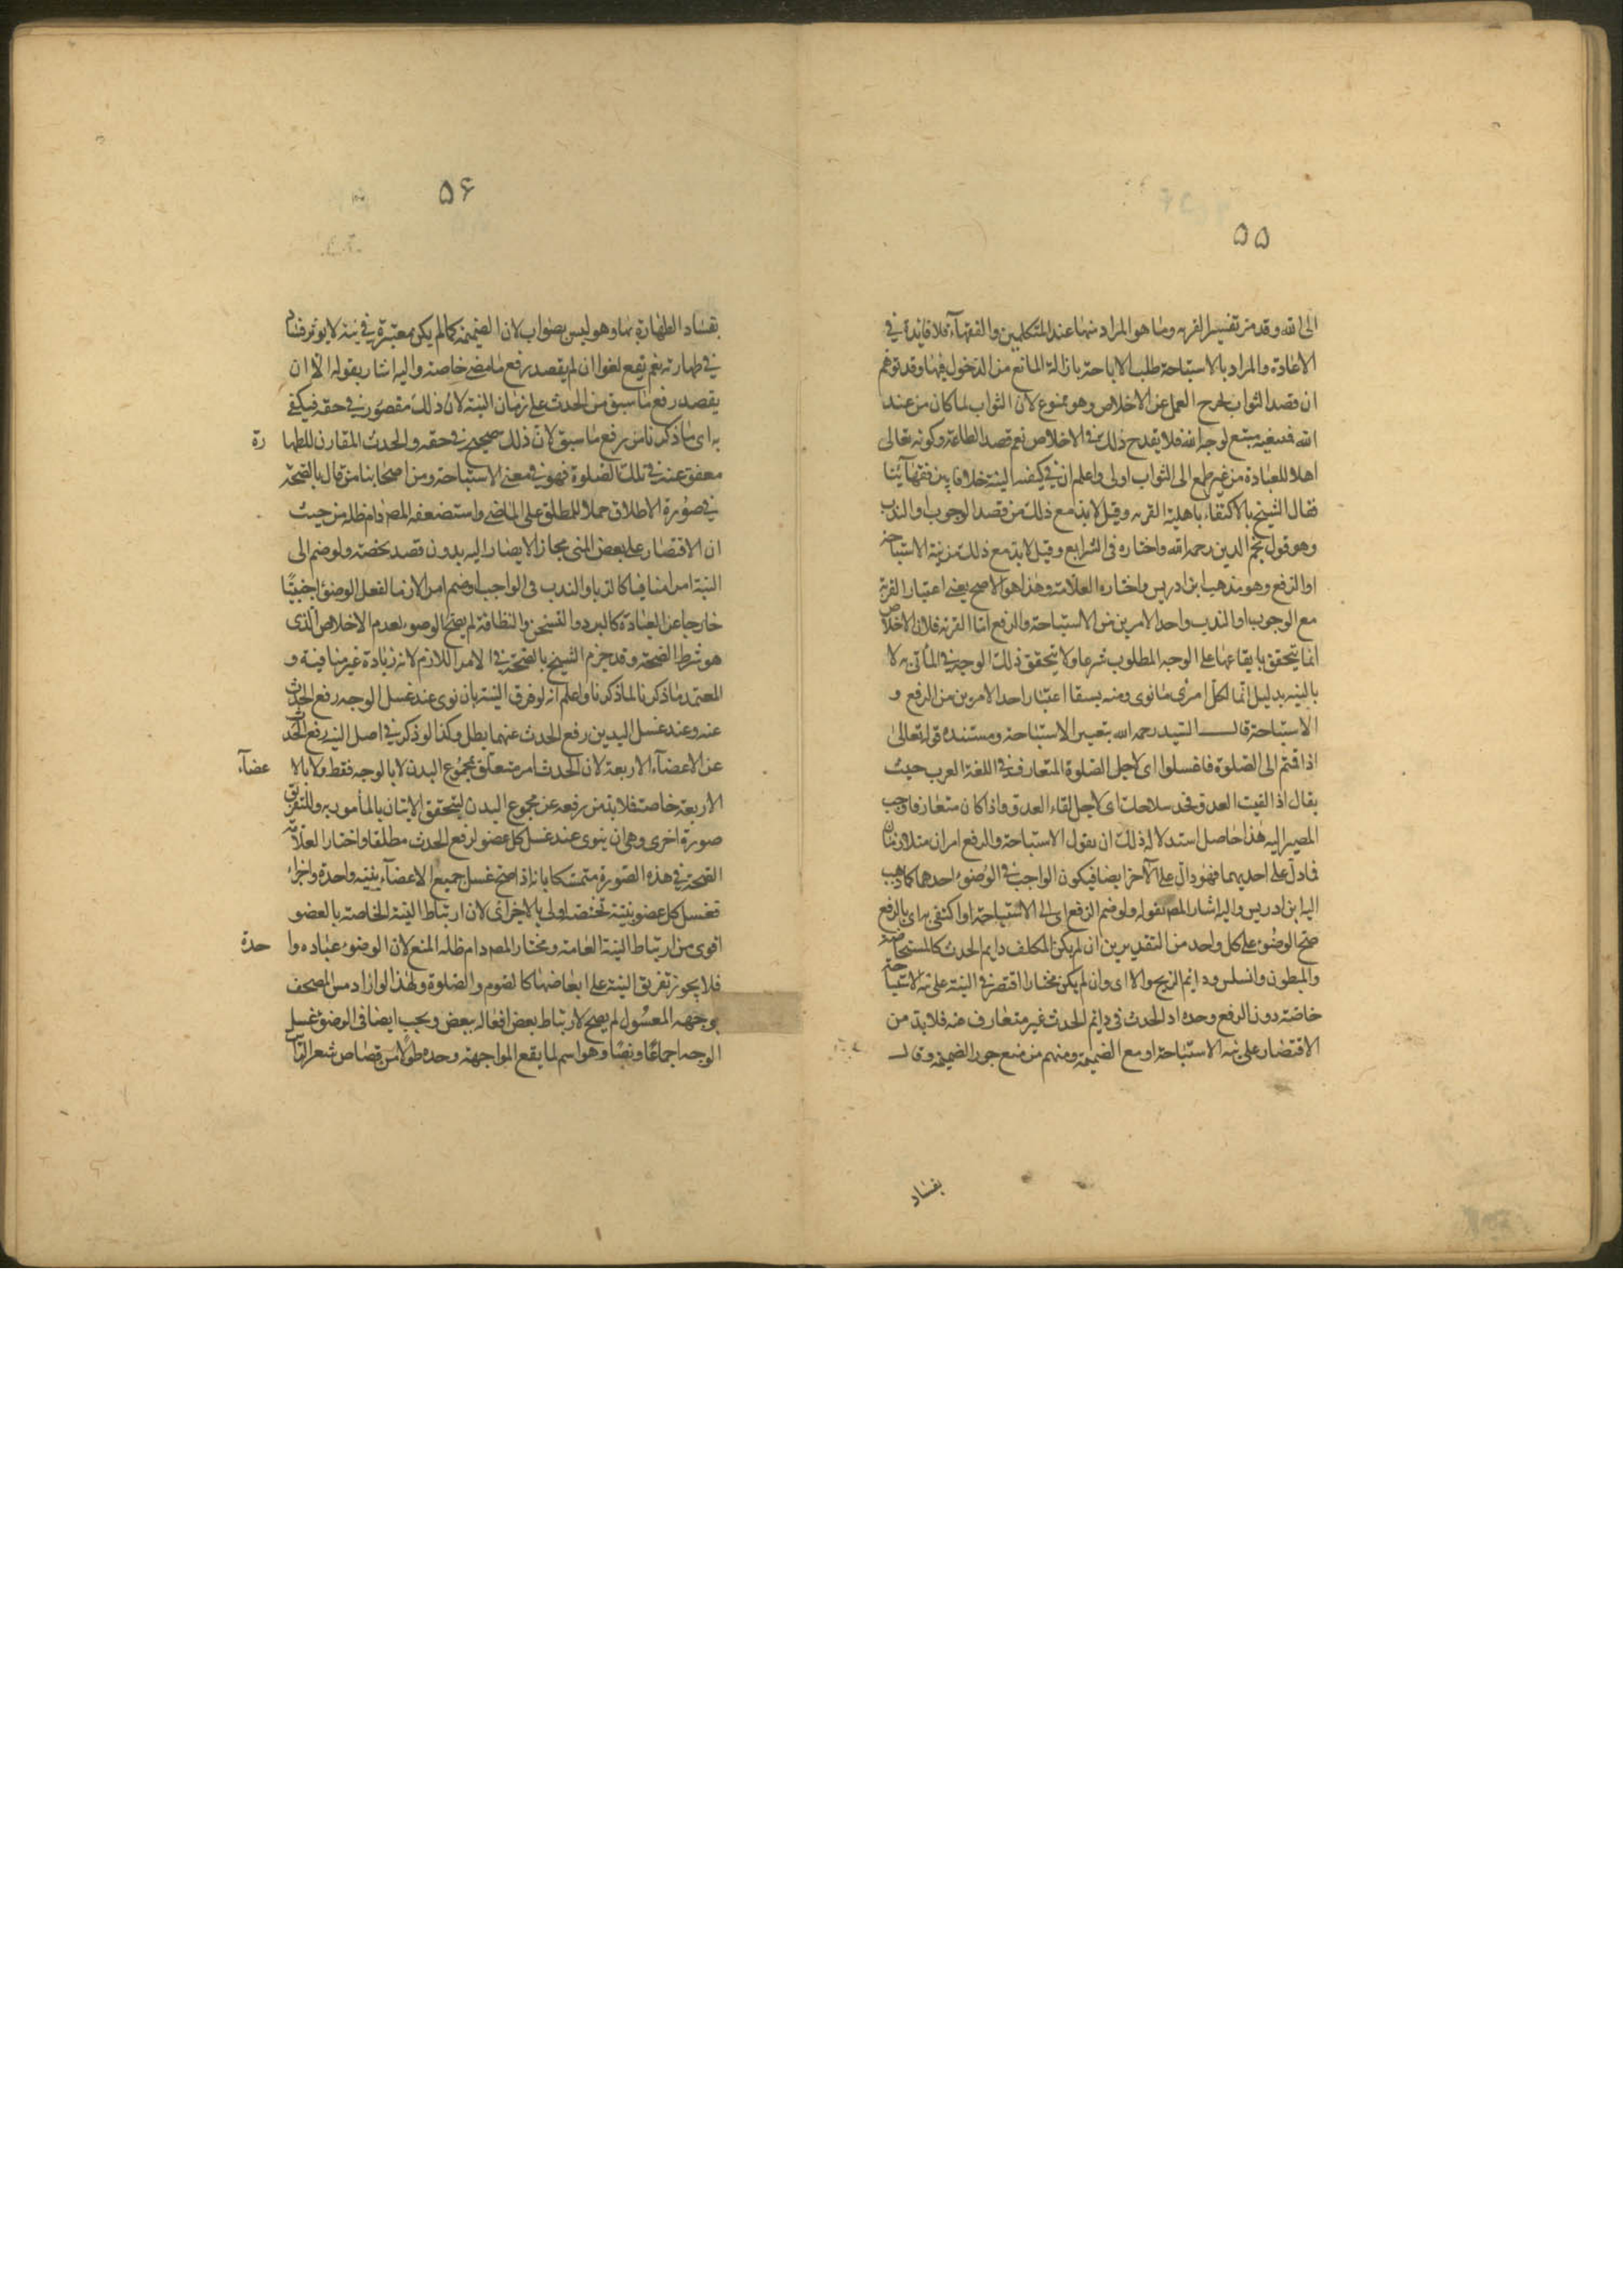 ۵۵
الى الله وقد مر تفسير القربه وما هو المراد منها عند المتكلمين والفقهآء فلا فايدة في
الاعادة والمراد بالاستباحة طلب الاباحة بازالة المانع من الدخول فيها وقد توهم
ان قصد الثواب يخرج العمل عن الاخلاص وهو ممنوع لان الثواب لما كان من عند
الله فمبتغيه مبتغ لوجه الله فلا يقدح ذلك في الاخلاص نعم قصد الطاعة وكونه تعالى
اهلا للعبادة من غير طمع الى الثواب اولى واعلم ان في كيفية النية خلافا بين فقهآئنا
فقال الشيخ بالاكتفاء باهلية القربه وقيل لابد مع ذلك من قصد الوجوب او الندب
وهو قول نجم الدين رحمه الله واختاره في الشرايع وقيل لابد مع ذلك من نية الاستباحة
او الرفع وهو مذهب ابن ادريس واختاره العلامة وهذا هو الاصح يعني اعتبار القربة
مع الوجوب او الندب واحد الامرين من الاستباحة والرفع اما القربه فلان الاخلاص
انما يتحقق بها بايقاعها على الوجه المطلوب شرعا ولا يتحقق ذلك الوجه في المأتي به لا
بالنيه بدليل انما لكل امرئ ما نوى ومنه يستفا اعتبار احد الامرين من الرفع و
الاستباحة قال السيد رحمه الله بتعيين الاستباحة ومستنده قوله تعالى
اذا قمتم الى الصلوة فاغسلوا اى لاجل الصلوة المتعارف في اللغة العرب حيث
يقال اذا لقيت العدو فخذ سلاحك اى لاجل لقاء العدو واذا كان متعارفا وجب
المصير اليه هذا حاصل استدلاله لذلك ان نقول الاستباحة والرفع امران متلازمان
فما دل على احديهما فهو دال على الآخر ايضا فيكون الواجب في الوضوء احدهما كما ذهب
اليه ابن ادريس واليه اشار المصـ بقوله ولو ضم الرفع اى الى الاستباحة او اكتفى به اى بالرفع
صح الوضوء على كل واحد من التقديرين ان لم يكن المكلف دايم الحدث كالمستحاضة
والمبطون والسلس ودايم الريح والا اى وان لم يكن مختارا اقتصر في النية على نية الاستباحة
خاصة دون الرفع وحده اذ الحدث في دايم الحدث غير متعارف منه فلابد من
الاقتصار على نية الاستباحة او مع الضميمة ومنهم من منع جواز الضميمة وقال
بفساد
۵۶
بفساد الطهارة بها وهو ليس بصواب لان الضميمة كما لم يكن معتبرة في نيته لا يوثر فسادا
في طهارته نعم يقع لغوا ان لم يقصد رفع ما مضى خاصة واليه اشار بقوله الا ان
يقصد رفع ما سبق من الحدث على زمان النية لان ذلك مقصور في حقه فيكفي
به اى ما ذكرنا من رفع ما سبق لان ذلك صحيح في حقه والحدث المقارن للطهارة
معفو عنه في تلك الصلوة فهو في معنى الاستباحة ومن اصحابنا من قال بالصحة
في صورة الاطلاق حملا للمطلق على الماضي واستضعفه المصـ دام ظله من حيث
ان الاقتصار على بعض المنى مجاز لا يصار اليه بدون قصد يخصه ولو ضم الى
النية امرا منافيا كالريا والندب في الواجب او ضم امرا لازما لفعل الوضوء اجنبيًا
خارجا عن العبادة كالبرد والتسخن والنظافة لم يصح الوضوء لعدم الاخلاص الذى
هو شرط الصحة وقد جزم الشيخ بالصحة في الامر اللازم لانه زيادة غير منافية و
المعتمد ما ذكرنا لما ذكرنا واعلم انه لو فرق النية بان نوى عند غسل الوجه رفع الحدث
عنه وعند غسل اليدين رفع الحدث عنهما بطل وكذا لو ذكر في اصل النية رفع الحدث
عن الاعضآء الاربعة لان الحدث امر متعلق بمجموع البدن لا بالوجه فقط ولا بالاعضآء
الاربعة خاصة فلابد من رفعه عن مجموع البدن ليتحقق الاتيان بالمأمور به وللتفريق
صورة اخرى وهى ان ينوى عند غسل كل عضو لرفع الحدث مطلقا واختار العلامة
الصحة في هذه الصورة متمسكا بانه اذا صح غسل جميع الاعضآء بنية واحدة واجزاء
فغسل كل عضو بنية تختصه اولى بالاجزائ لان ارتباط النية الخاصة بالعضو
اقوى من ارتباط النية العامة ومختار المصـ دام ظله المنع لان الوضوء عباده واحدة
فلا يجوز تفريق النية على ابعاضها كالصوم والصلوة ولهذا لو اراد مس المصحف
بوجهه المغسول لم يصح لارتباط بعض افعاله ببعض ويجب ايضا في الوضوء غسل
الوجه اجماعًا ونصًا وهو اسم لما يقع المواجهة وحده طولا من قصاص شعر الراس